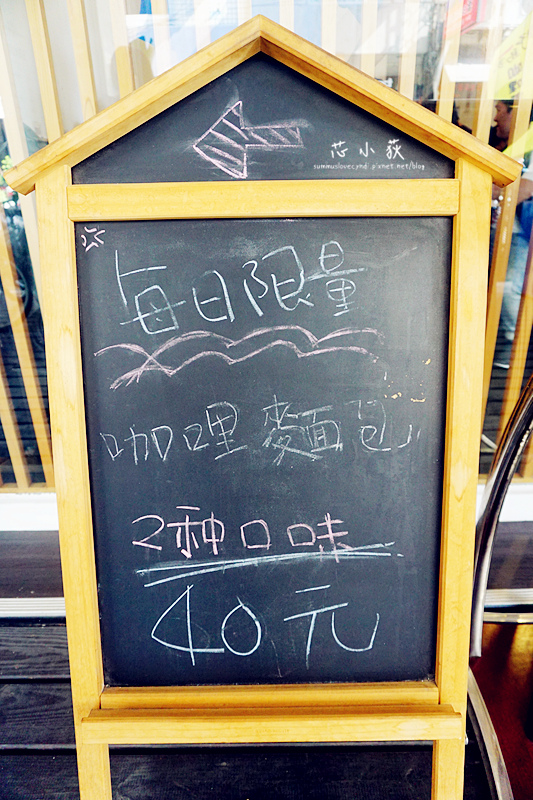 芯小荻
summuslovecyndi.pixnet.net/blog
每日限量
咖哩麥面包
2种口味
40元